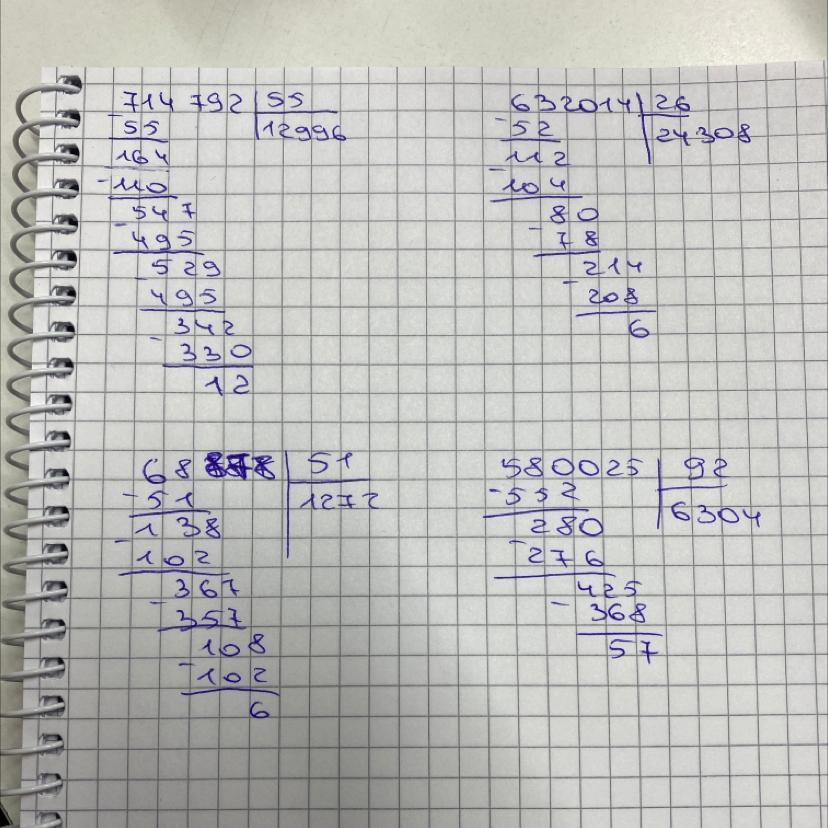 714 792 | 55
- 55 | 12996
164
- 110
547
- 495
529
- 495
342
- 330
12
632014 | 26
- 52 | 24308
112
- 104
80
- 78
214
- 208
6
68 | 51
- 51 | 1272
138
- 102
367
- 357
108
- 102
6
580025 | 92
- 552 | 6304
280
- 276
425
- 368
57